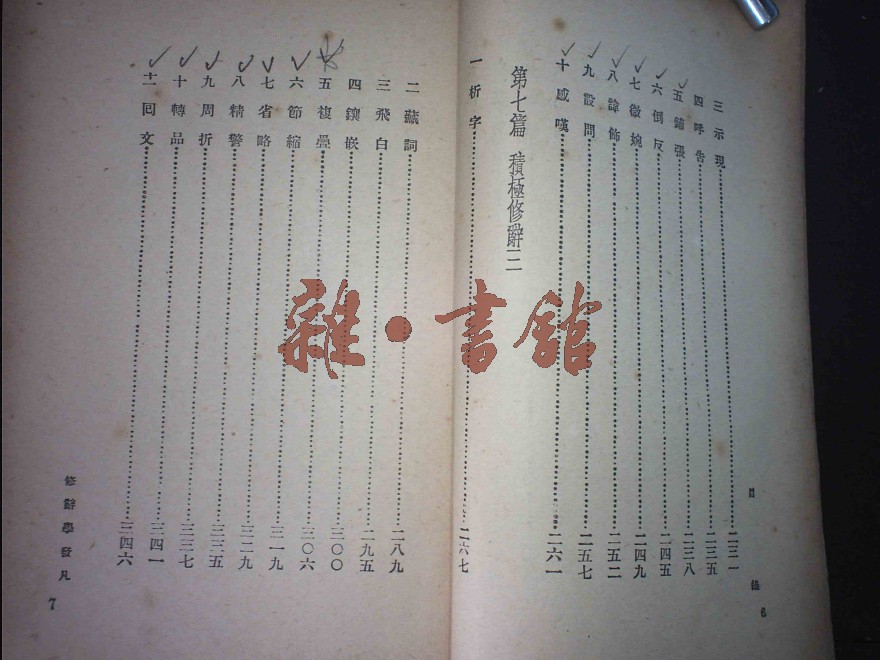 目錄 6
三 示現……二三一
四 呼告……二三五
五 鋪張……二三八
六 倒反……二四五
七 微婉……二四九
八 諱飾……二五二
九 設問……二五七
十 感嘆……二六一
第七篇 積極修辭三
一 析字……二六七
二 藏詞……二八九
三 飛白……二九五
四 鑲嵌……三〇〇
五 複疊……三〇六
六 節縮……三一九
七 省略……三二九
八 精警……三三五
九 周折……三三七
十 轉品……三四一
十一 回文……三四六
修辭學發凡 7
雜·書館